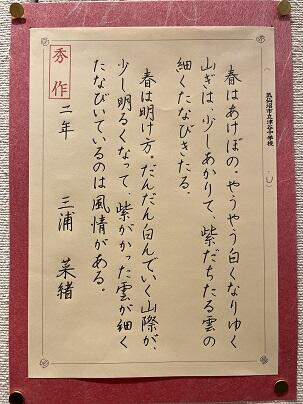 気仙沼市立津谷中学校
春はあけぼの。やうやう白くなりゆく
山ぎは、少しあかりて、紫だちたる雲の
細くたなびきたる。
春は明け方。だんだん白んでいく山際が、
少し明るくなって、紫がかった雲が細く
たなびいているのは風情がある。
二年 三浦 菜緒
秀作